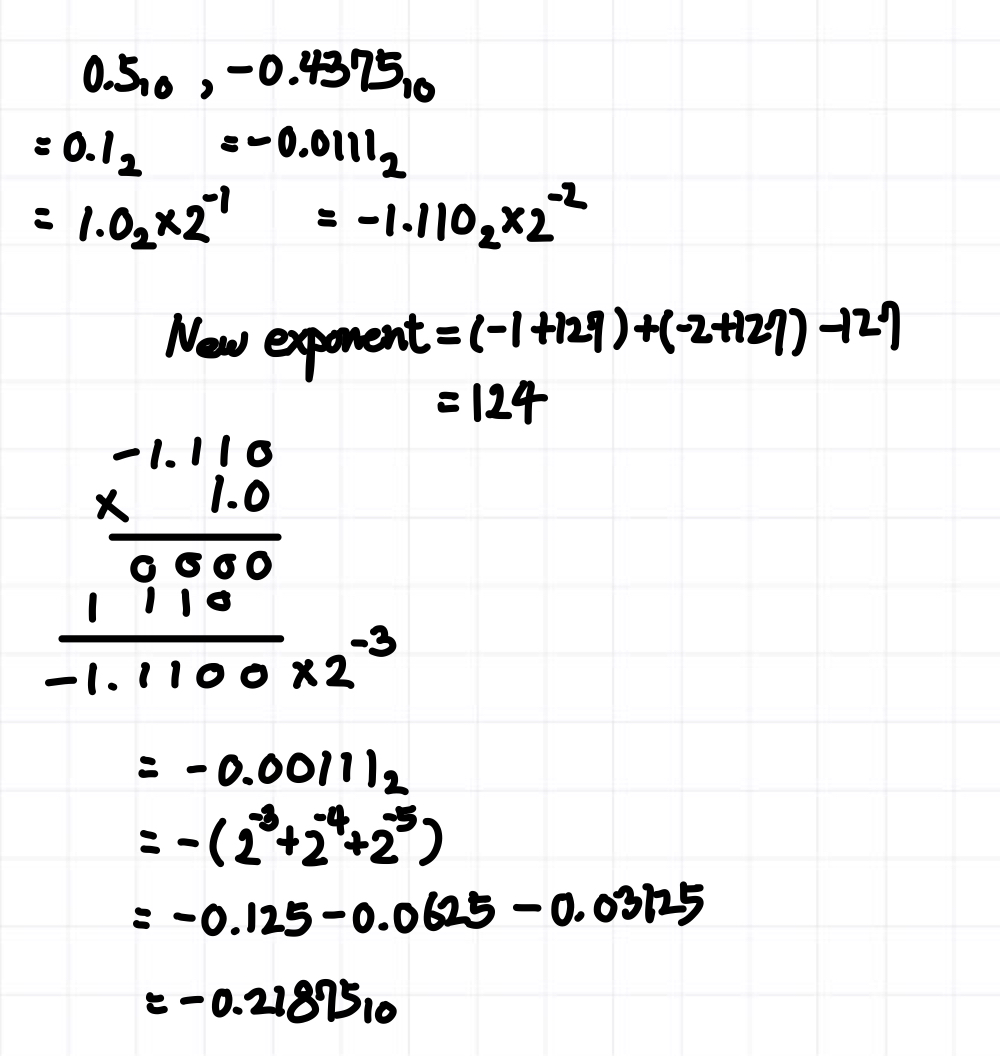 0.5₁₀ , -0.4375₁₀
= 0.1₂ = -0.0111₂
= 1.0₂ × 2⁻¹ = -1.110₂ × 2⁻²
New exponent = (-1+127)+(-2+127) -127
= 124
-1.110
× 1.0
0000
1 110
-1.1100 × 2⁻³
= -0.00111₂
= -(2⁻³+2⁻⁴+2⁻⁵)
= -0.125-0.0625-0.03125
= -0.21875₁₀